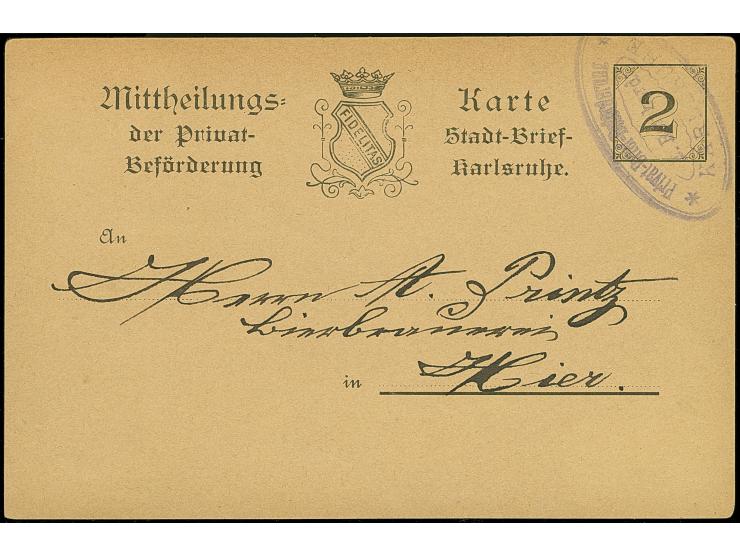 Mittheilungs= Karte
der Privat- Stadt-Brief-
Beförderung Karlsruhe.
FIDELITAS
2
An
Herrn A. Printz
Bierbrauerei
in Hier.